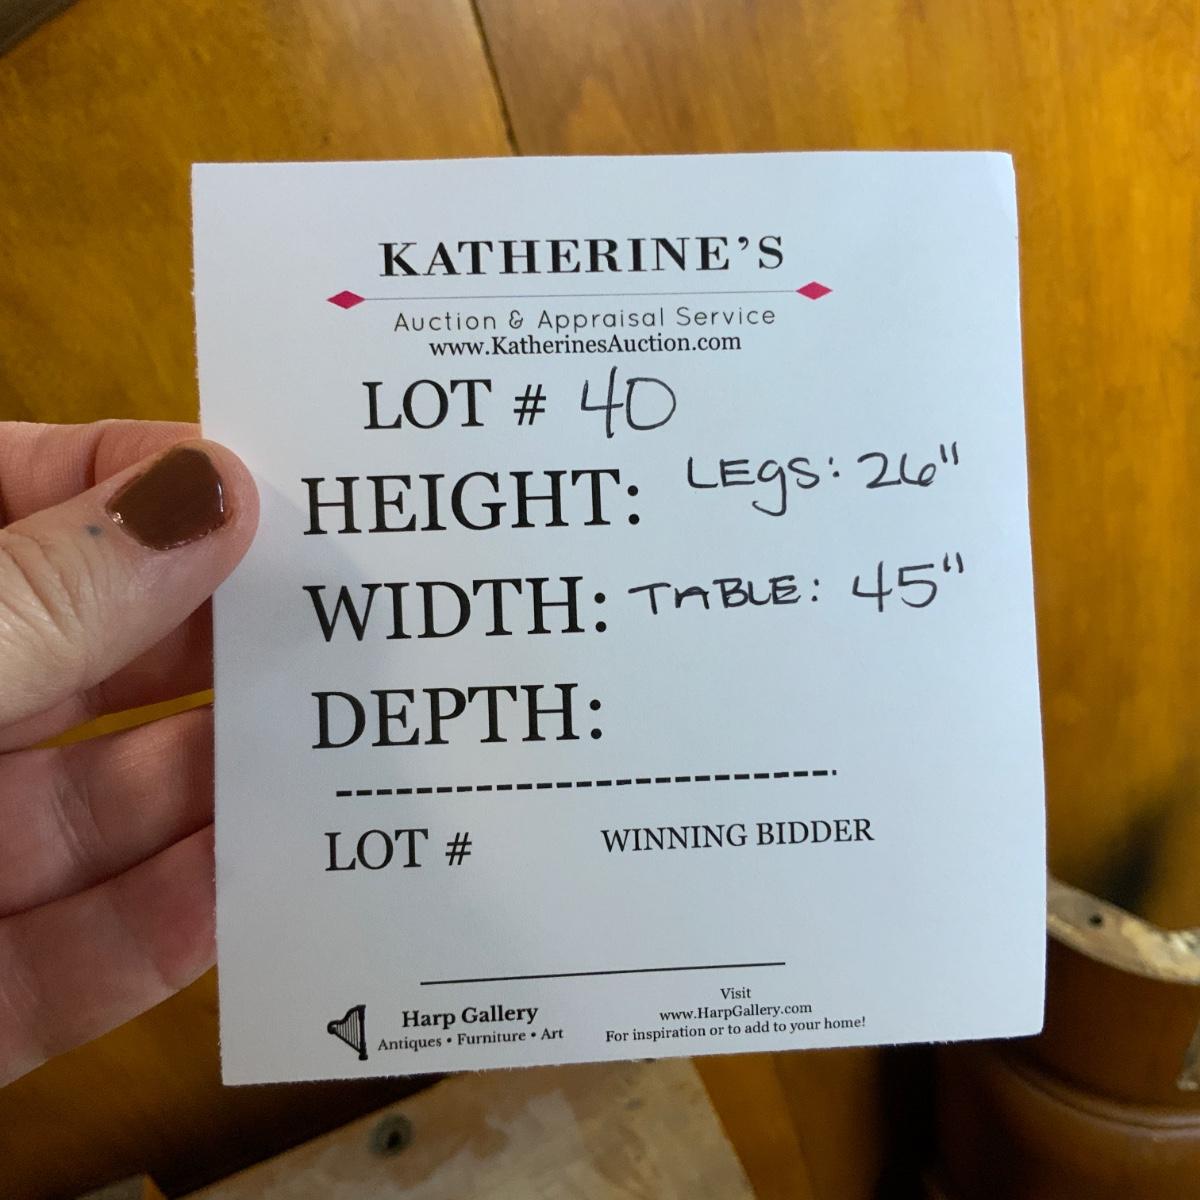 KATHERINE'S
Auction & Appraisal Service
www.KatherinesAuction.com
LOT # 40
HEIGHT: LEgS: 26"
WIDTH: TABLE: 45"
DEPTH:
LOT # WINNING BIDDER
Harp Gallery
Antiques • Furniture • Art
Visit
www.HarpGallery.com
For inspiration or to add to your home!